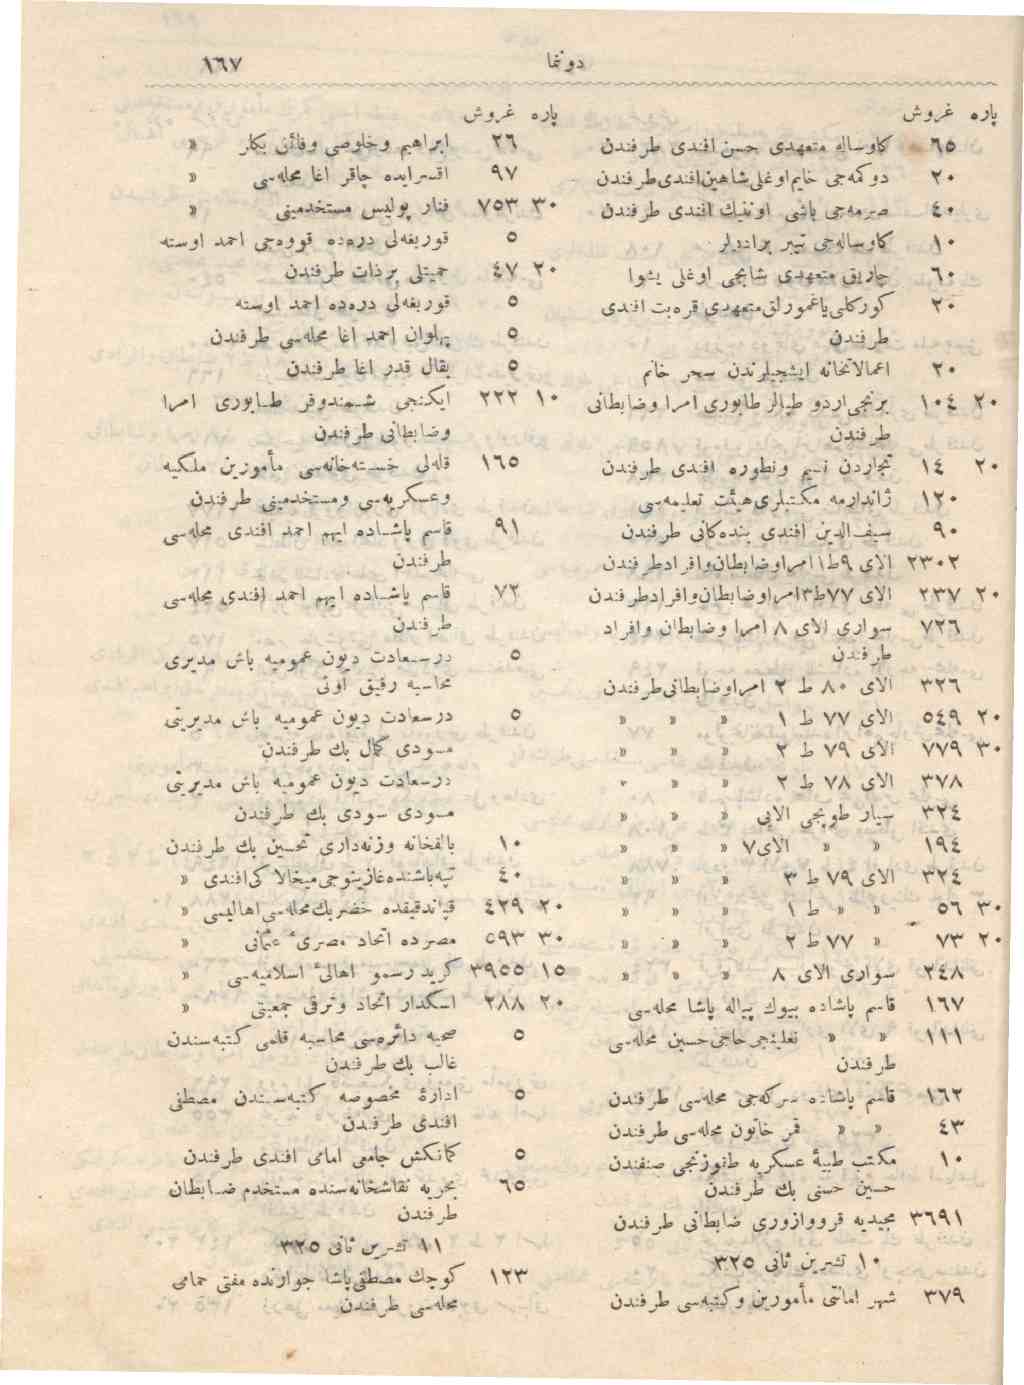 دونما ١٦٧
پاره غروش
٦٥ كاوساله متعهدی حسن افندی طرفندن
٢٠ دوكمه‌جی خایم اوغلی شاهین افندی طرفندن
٤٠ صرمه‌جی باشی اونتیك افندی طرفندن
١٠ كاوساله‌جی تیبر برادرلر
٦٠ چاریق متعهدی شابجی اوغلی یشوا
٢٠ كوركلی یاغمورلق متعهدی قره‌بت افندی
طرفندن
٢٠ اعمالاتخانه ایشجیلرندن سحر خانم
٢٠ ١٠٤ برنجی اردو طپالر طابوری امرا وضابطانی
طرفندن
٢٠ ١٤ تجاردن نسیم ونطوره افندی طرفندن
١٢٠ ژاندارمه مكتبلری هیئت تعلیمه‌سی
٩٠ سیف الدین افندی بنده‌كانی طرفندن
٢٣٠٢ الای ٩ ط ١ امرا وضابطان وافراد طرفندن
٢٠ ٢٣٧ الای ٧٧ ط ٣ امرا وضابطان وافراد طرفندن
٧٢٦ سواری الای ٨ امرا وضابطان وافراد
طرفندن
٣٢٦ الای ٨٠ ط ٢ امرا وضابطانی طرفندن
٢٠ ٥٤٩ الای ٧٧ ط ١ » » »
٣٠ ٧٧٩ الای ٧٩ ط ٢ » » »
٣٧٨ الای ٧٨ ط ٢ » » »
٣٢٤ سیار طوپجی الایی » » »
١٩٤ » » الای ٧ » » »
٣٢٤ الای ٧٩ ط ٣ » » »
٣٠ ٥٦ » » ط ١ » » »
٢٠ ٧٣ » ٧٧ ط ٢ » » »
٢٤٨ سواری الای ٨ » » »
١٦٧ قاسم پاشاده بیوك پیاله پاشا محله‌سی
١١١ » » نعلینجی حاجی حسین محله‌سی
طرفندن
١٦٢ قاسم پاشاده سركه‌جی محله‌سی طرفندن
٤٣ » » قمر خاتون محله‌سی طرفندن
١٠ مكتب طبیهٔ عسكریه طقوزنجی صنفندن
حسین حسنی بك طرفندن
٣٦٩١ مجیدیه قرووازوری ضابطانی طرفندن
١٠ تشرین ثانی ٣٢٥
٣٧٩ شهر امانتی مأمورین وكتبه‌سی طرفندن
پاره غروش
٢٦ ابراهیم وخلوصی وفائق بكلر »
٩٧ اقسرایده چاقر اغا محله‌سی »
٣٠ ٧٥٣ فنار پولیس مستخدمینی »
٥ قوربغه‌لی دره‌ده قووه‌جی احمد اوسته
٢٠ ٤٧ حمیتلی برذات طرفندن
٥ قوربغه‌لی دره‌ده احمد اوسته
٥ پهلوان احمد اغا محله‌سی طرفندن
٥ بقال قدر اغا طرفندن
١٠ ٢٢٢ ایكنجی شمندوفر طابوری امرا
وضابطانی طرفندن
١٦٥ قله‌لی خسته‌خانه‌سی مأمورین ملكیه
وعسكریه‌سی ومستخدمینی طرفندن
٩١ قاسم پاشاده ایهم احمد افندی محله‌سی
طرفندن
٧٢ قاسم پاشاده ایهم احمد افندی محله‌سی
طرفندن
٥ درسعادت دیون عمومیه باش مدیری
محاسبه رفیق اوئی
٥ درسعادت دیون عمومیه باش مدیریتی
مسودی كمال بك طرفندن
درسعادت دیون عمومیه باش مدیریتی
مسودی سودی بك طرفندن
١٠ بالقخانه وزنه‌داری تحسین بك طرفندن
٤٠ تپه‌باشنده غازینوجی میخالاكی افندی »
٢٠ ٤٢٩ قپاندقیقده خضربك محله‌سی اهالیسی »
٣٠ ٥٩٣ مصرده اتحاد مصرئ عثمانی »
١٥ ٣٩٥٥ كرید رسمو اهالئ اسلامیه‌سی »
٢٠ ٢٨٨ اسكدار اتحاد وترقی جمعیتی »
٥ صحیه دائره‌سی محاسبه قلمی كتبه‌سندن
غالب بك طرفندن
٥ ادارهٔ مخصوصه كتبه‌سندن مصطفی
افندی طرفندن
٥ كمانكش جامعی امامی افندی طرفندن
٦٥ بحریه نقاشخانه‌سنده مستخدم ضابطان
طرفندن
١١ تشرین ثانی ٣٢٥
١٢٣ كوچك مصطفی پاشا جوارنده مفتی حمامی
محله‌سی طرفندن